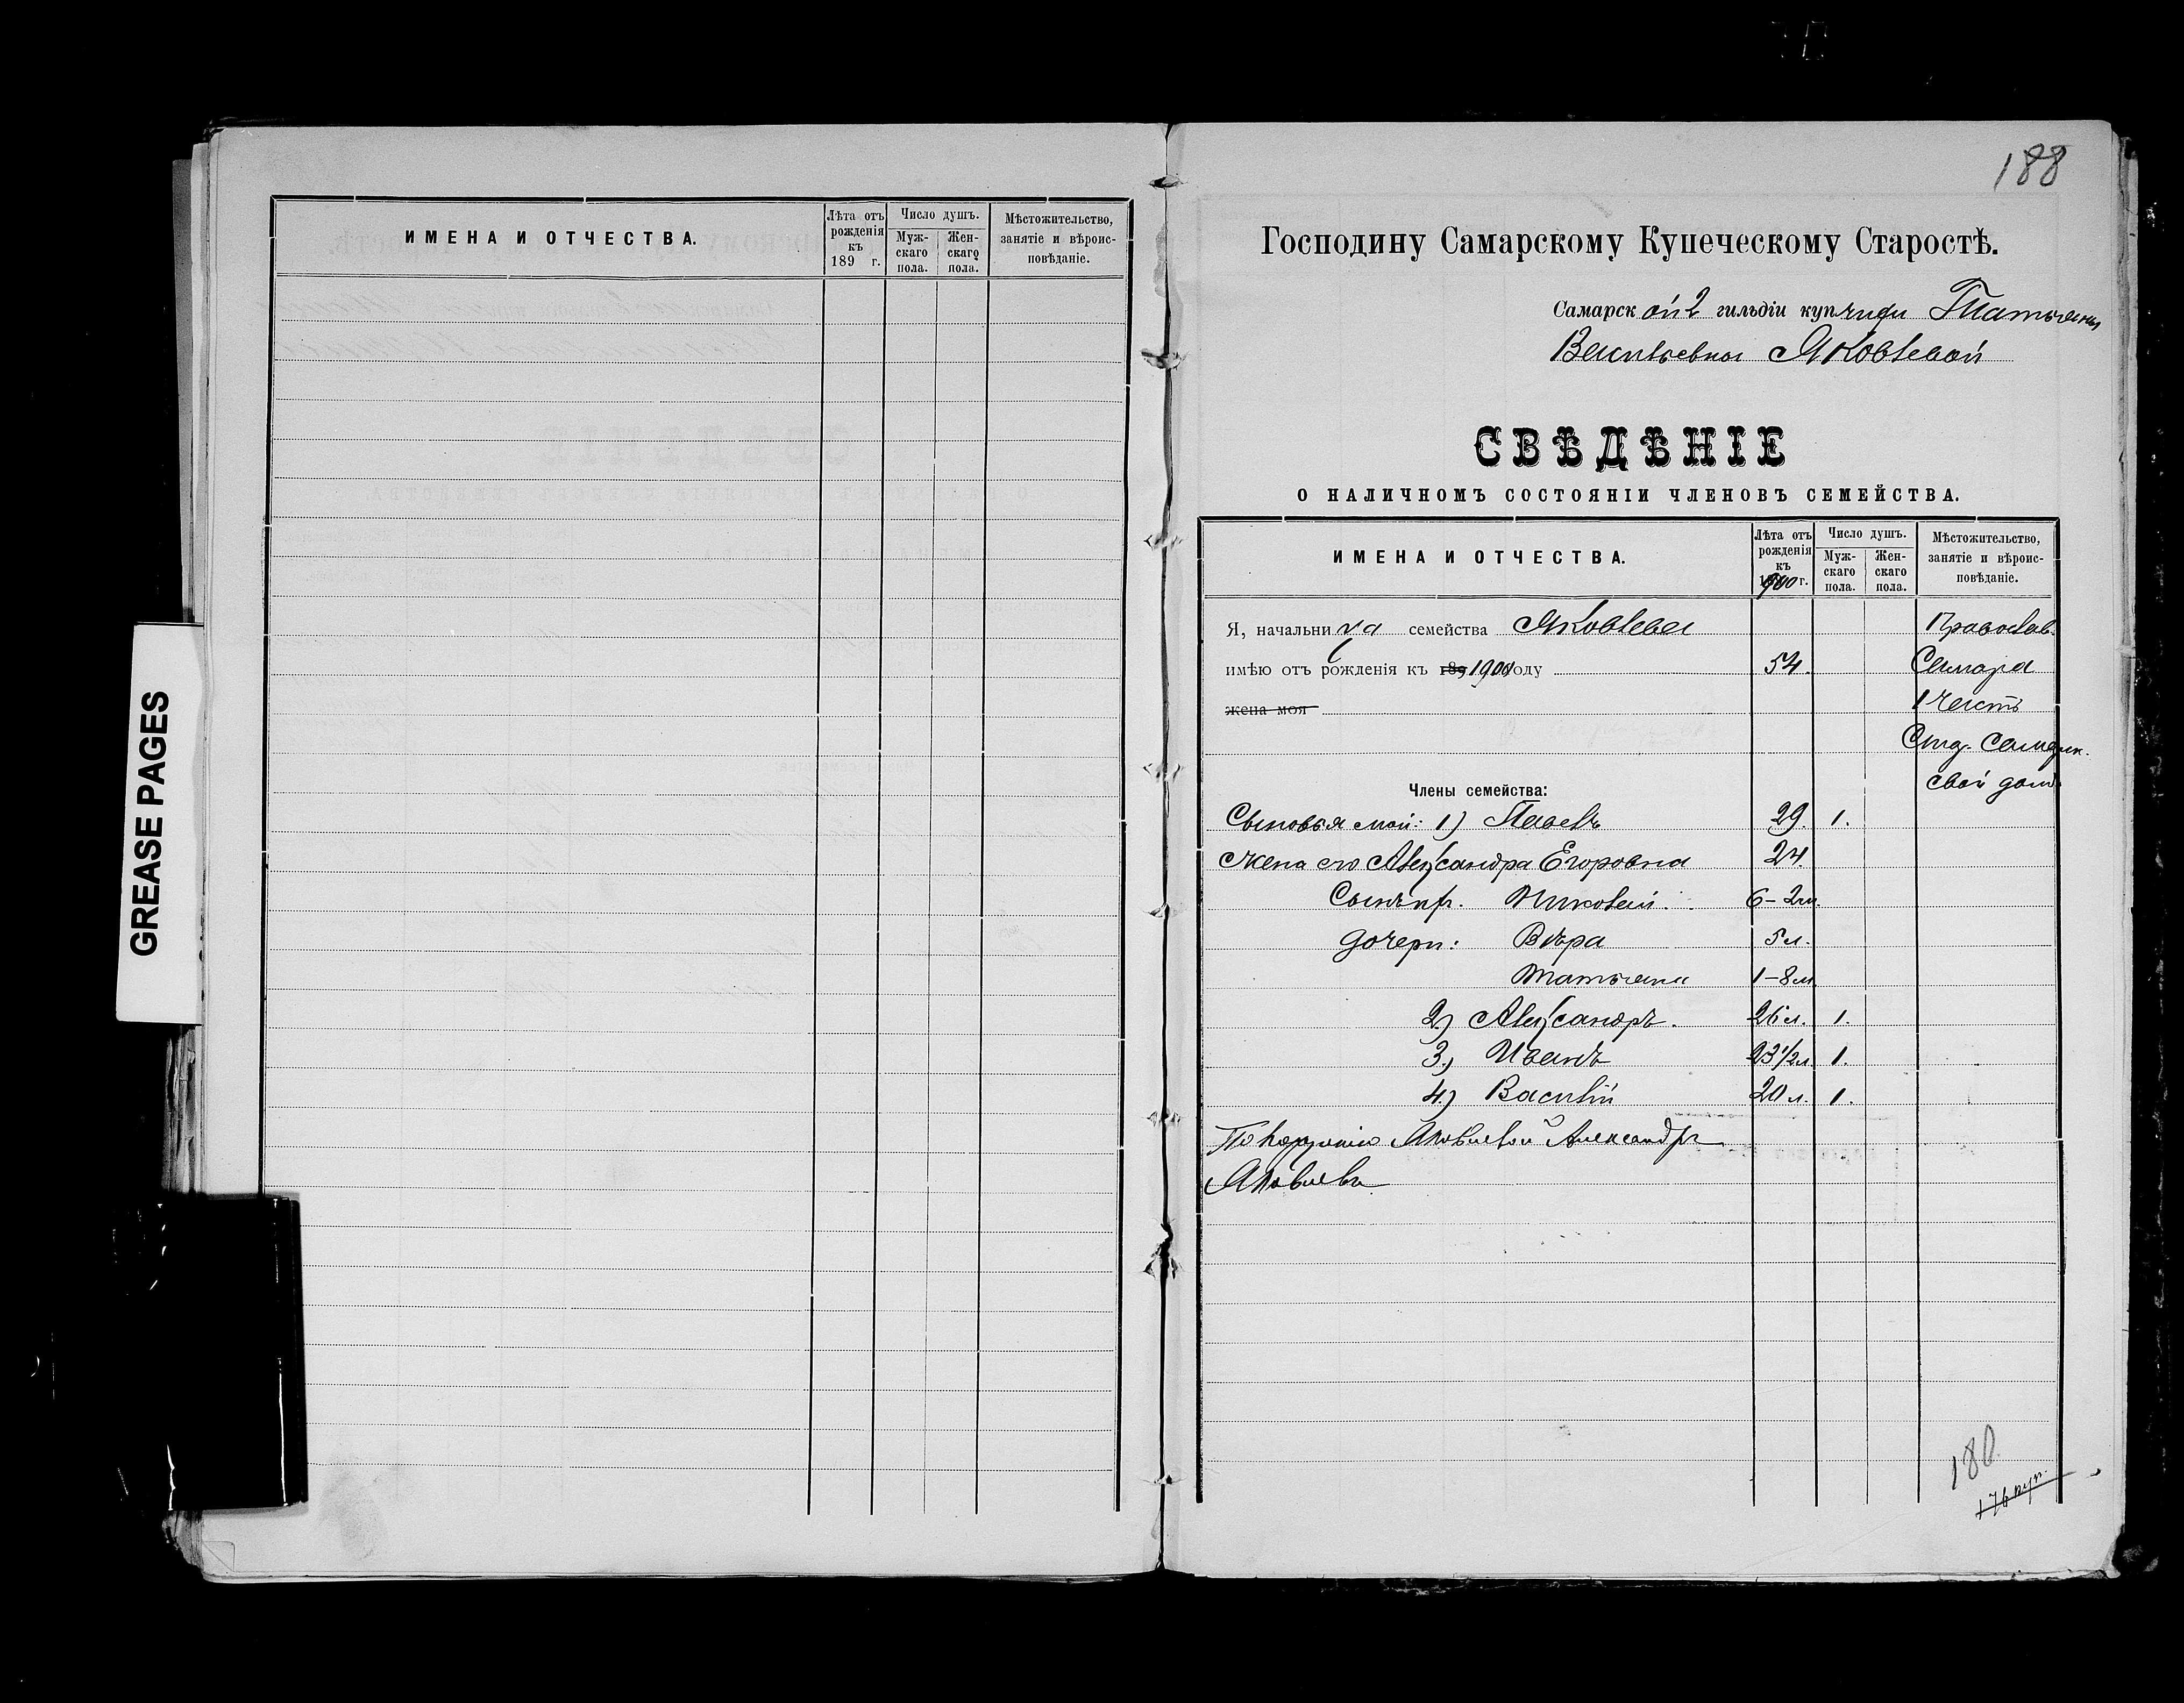 GREASE PAGES
ИМЕНА И ОТЧЕСТВА.
Лѣта отъ рожденія къ 189 г.
Число душъ.
Мужскаго пола.
Женскаго пола.
Мѣстожительство, занятіе и вѣроисповѣданіе.
188
Господину Самарскому Купеческому Старостѣ.
Самарской 2 гильдіи купчихи Татьяны
Васильевны Яковлевой
СВѢДѢНІЕ
О НАЛИЧНОМЪ СОСТОЯНІИ ЧЛЕНОВЪ СЕМЕЙСТВА.
ИМЕНА И ОТЧЕСТВА.
Лѣта отъ рожденія къ 1900 г.
Число душъ.
Мужскаго пола.
Женскаго пола.
Мѣстожительство, занятіе и вѣроисповѣданіе.
Я, начальница семейства Яковлева Православ.
имѣю отъ рожденія къ 189 1900 году 54. Самара
жена моя 1 часть
свой домъ
Члены семейства:
Сыновья мои: 1) Павелъ 29. 1.
Жена его Александра Егоровна 24.
Сынъ Николай. 6-2м.
Дочери: Вѣра 5 л.
Татьяна 1-8м
2) Александръ. 26 л. 1.
3) Иванъ 23 1/2 л. 1.
4) Василій 20 л. 1.
Яковлевой Александръ
Яковлевъ
180
176 куп.